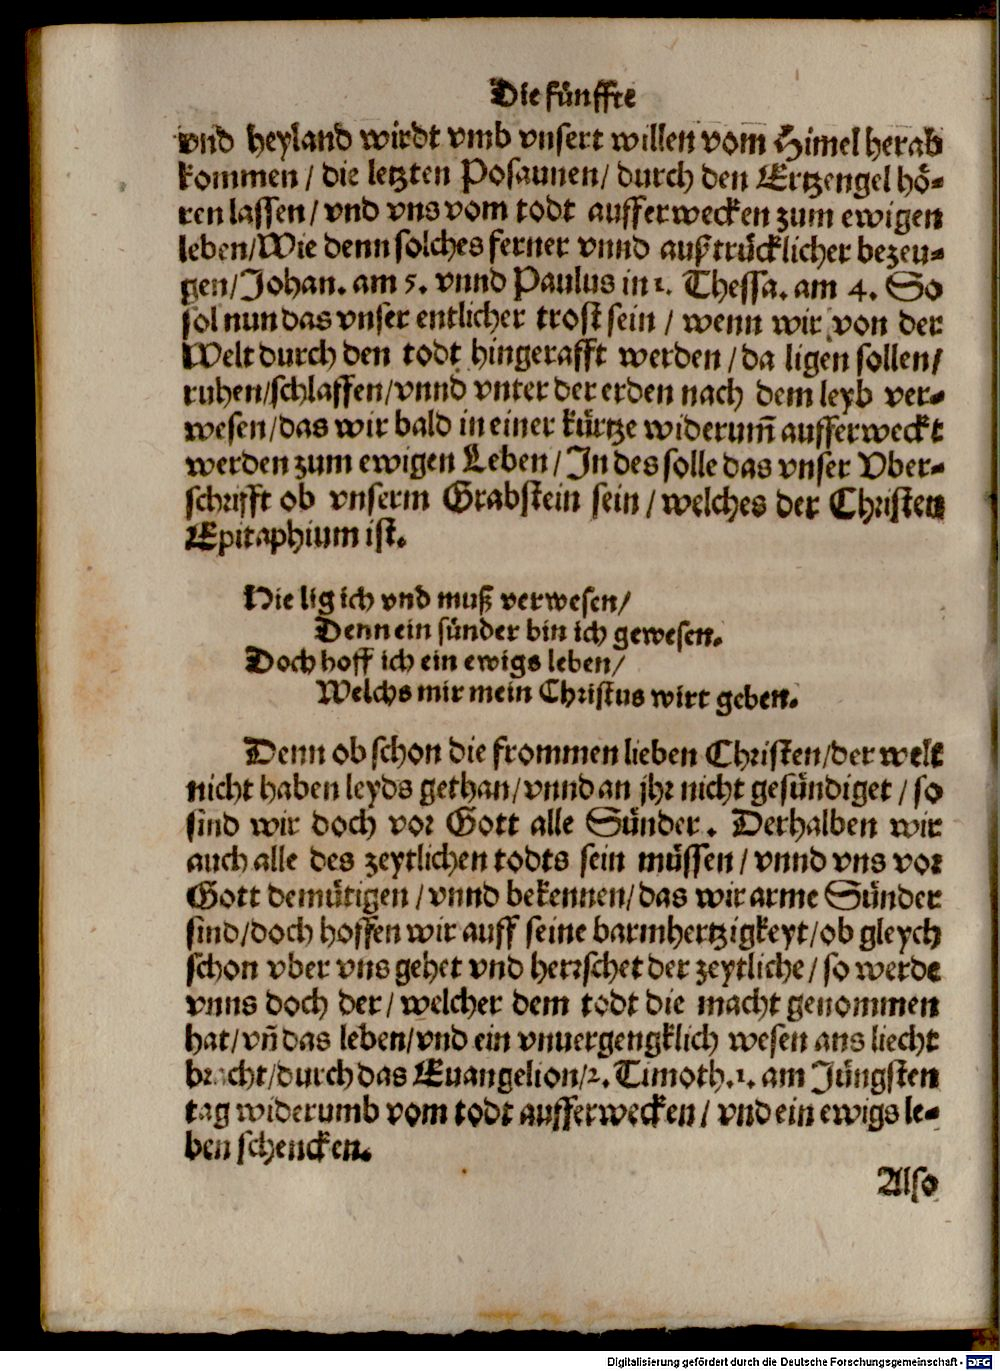 Die fünffte
vnd heyland wirdt vmb vnsert willen vom Himel herab
kommen / die letzten Posaunen / durch den Ertzengel hö-
ren lassen / vnd vns vom todt aufferwecken zum ewigen
leben / Wie denn solches ferner vnnd außtrücklicher bezeu-
gen / Johan. am 5. vnnd Paulus in 1. Thessa. am 4. So
sol nun das vnser entlicher trost sein / wenn wir von der
Welt durch den todt hingerafft werden / da ligen sollen /
ruhen / schlaffen / vnnd vnter der erden nach dem leyb ver-
wesen / das wir bald in einer kürtze widerum̃ aufferweckt
werden zum ewigen Leben / In des solle das vnser Vber-
schrifft ob vnserm Grabstein sein / welches der Christen
Epitaphium ist.
Hie lig ich vnd muß verwesen /
Denn ein sünder bin ich gewesen.
Doch hoff ich ein ewigs leben /
Welchs mir mein Christus wirt geben.
Denn ob schon die frommen lieben Christen / der welt
nicht haben leyds gethan / vnnd an jhr nicht gesündiget / so
sind wir doch vor Gott alle Sünder. Derhalben wir
auch alle des zeytlichen todts sein müssen / vnnd vns vor
Gott demütigen / vnnd bekennen / das wir arme Sünder
sind / doch hoffen wir auff seine barmhertzigkeyt / ob gleych
schon vber vns gehet vnd herrschet der zeytliche / so werde
vnns doch der / welcher dem todt die macht genommen
hat / vñ das leben / vnd ein vnuergengklich wesen ans liecht
bracht / durch das Euangelion / 2. Timoth. 1. am Jüngsten
tag widerumb vom todt aufferwecken / vnd ein ewigs le-
ben schencken.
Also
Digitalisierung gefördert durch die Deutsche Forschungsgemeinschaft - DFG